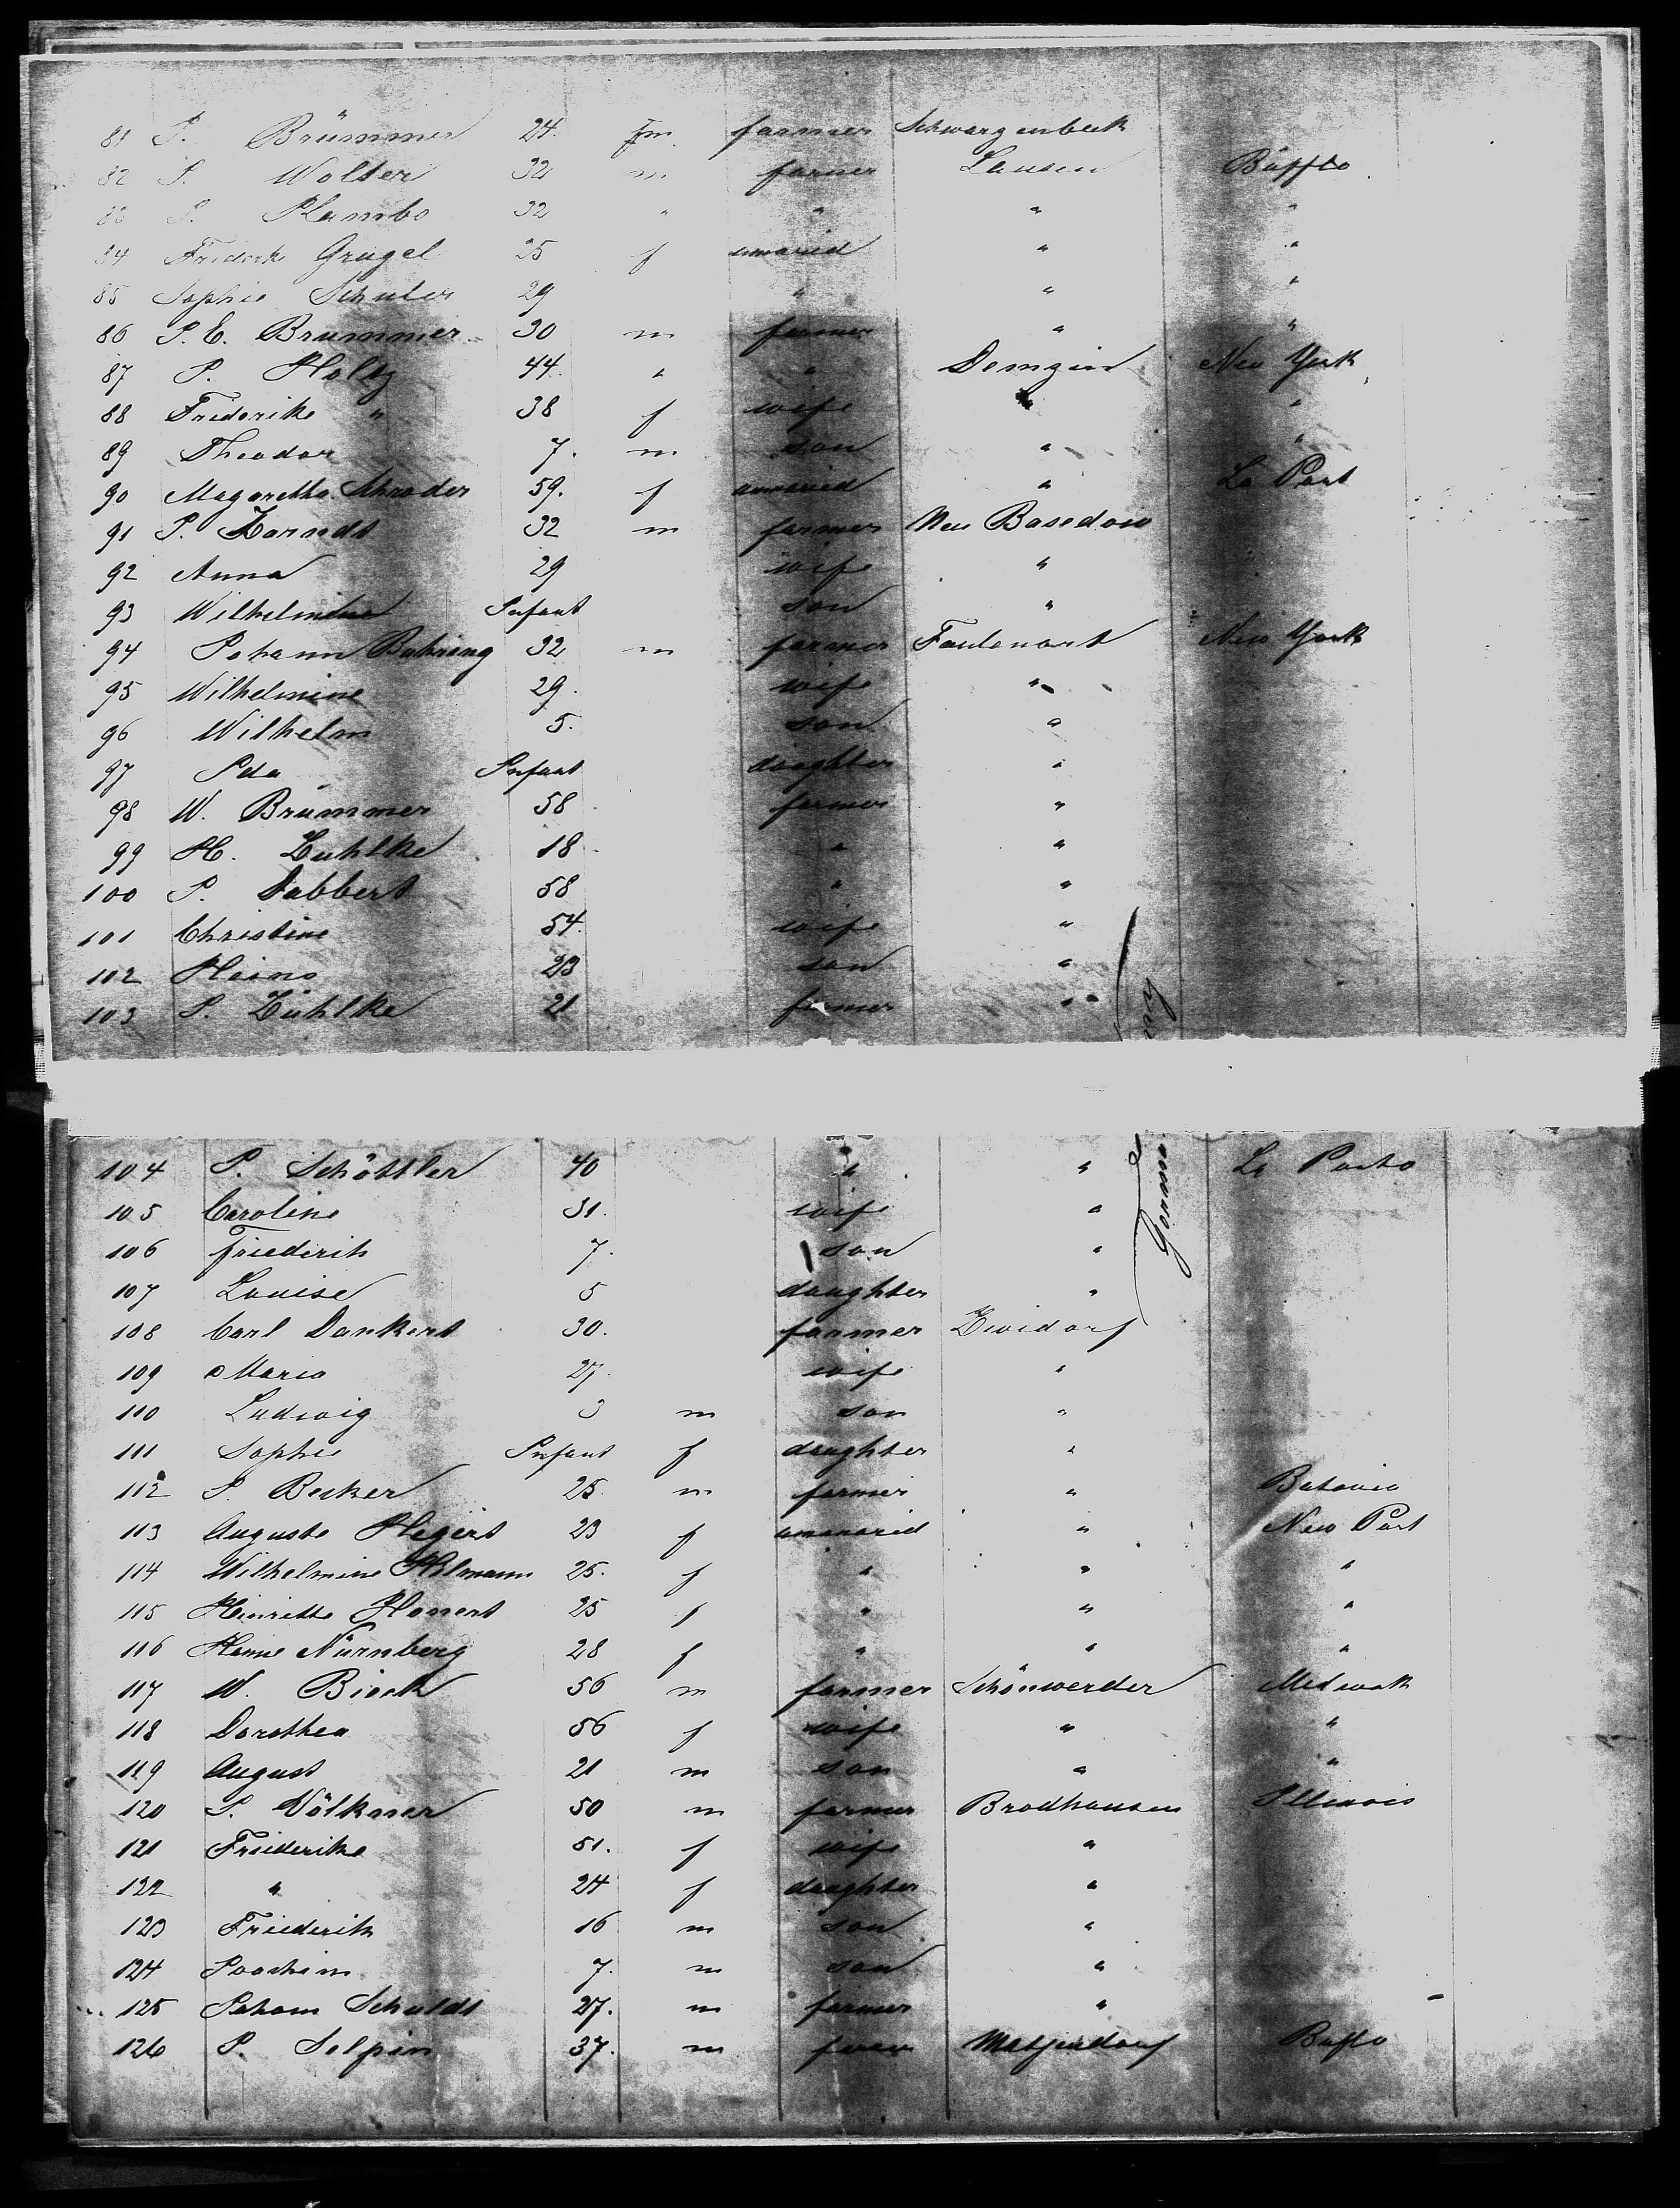 81 P. Brümmer 24. m farmer Schwarzenbeck
82 P. Wolter 32 m farmer Lansen Büfflo
83 P. Plambo 32 " " " "
84 Friderk Grugel 25 f unmarid " "
85 Sophie Schuler 29 " " "
86 P. C. Brummer 30 m farmer " "
87 P. Holtz 44. " " Demzin New York
88 Friderike " 38 f wife " "
89 Theodor 7. m son " "
90 Magaretha Schroder 59. f unmarid " La Port
91 P. Zarndt 32 m farmer Neu Basedow
92 Anna 29 wife "
93 Wilhelmine Infant son "
94 Johann Buhring 32 m farmer Faulenort New York
95 Wilhelmine 29. wife "
96 Wilhelm 5. son "
97 Ida Infant daughter "
98 W. Brümmer 58 farmer "
99 H. Zuhlke 18 " "
100 P. Dabbert 58 " "
101 Christine 54. wife "
102 Heino 23 son "
103 P. Zühlke 21 farmer "
104 P. Schöttler 40 " " La Porto
105 Caroline 31. wife "
106 Friederik 7. son "
107 Louise 5 daughter "
108 Carl Dankert 30. farmer Zwidorf
109 Maria 27. wife "
110 Ludwig 3 m son "
111 Sophie Infant f daughter "
112 P. Becker 25. m farmer " Batavia
113 Auguste Hegert 23 f unmarid " New Port
114 Wilhelmine Hilmann 25. f " " "
115 Heinrette Honert 25 f " " "
116 Hanne Nürnberg 28 f " " "
117 W. Birck 56 m farmer Schönwerder Milwak
118 Dorothea 56 f wife " "
119 August 21 m son " "
120 P. Völkner 50 m farmer Brodhausen Illinois
121 Friederike 51. f wife "
122 " 24 f daughter "
123 Friederik 16 m son "
124 Joachim 7. m son "
125 Joham Schuldt 27. m farmer "
126 P. Selpin 37. m farmer Matzendorf Buflo